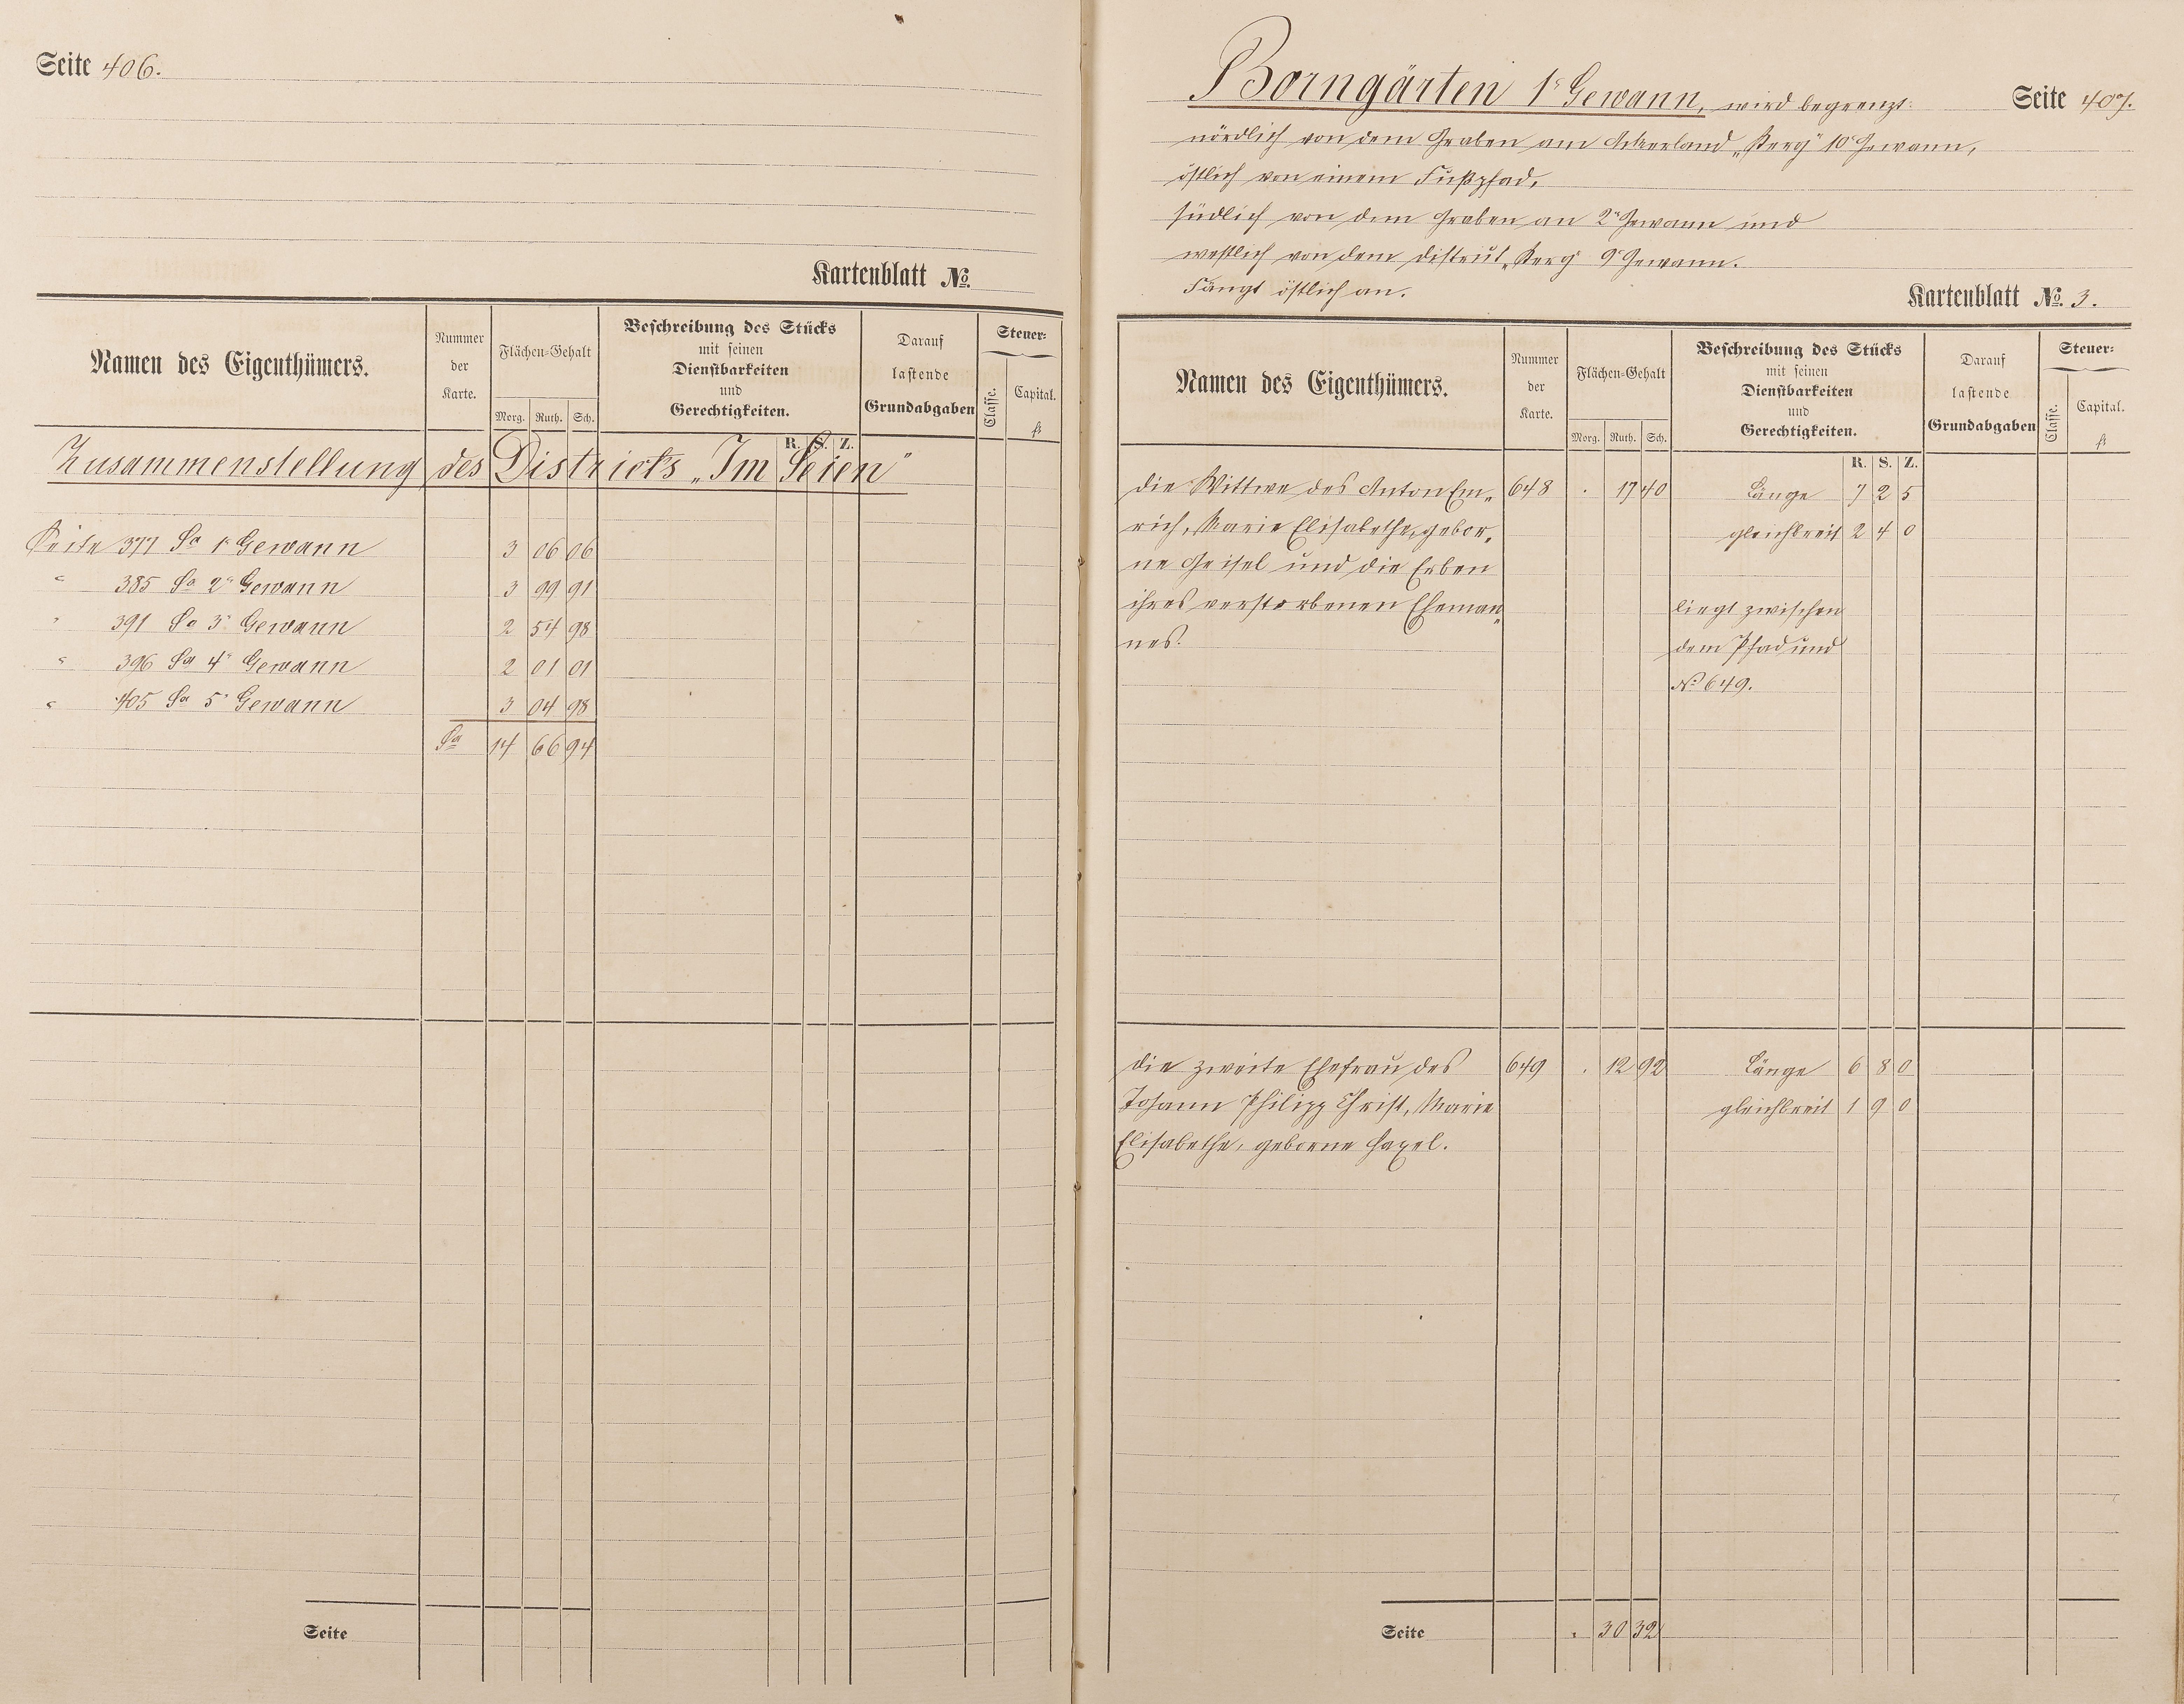 Seite 406.
Kartenblatt No.
Namen des Eigenthümers.
Nummer der Karte.
Flächen-Gehalt
Morg. Ruth. Sch.
Beschreibung des Stücks
mit seinen
Dienstbarkeiten
und
Gerechtigkeiten.
R. S. Z.
Darauf
lastende
Grundabgaben
Steuer-
Classe. Capital.
fl
Zusammenstellung des Districts „Im Seien"
Seite 377 Sa 1r Gewann 3 06 06
" 385 Sa 2r Gewann 3 99 91
" 391 Sa 3r Gewann 2 54 98
" 396 Sa 4r Gewann 2 01 01
" 405 Sa 5r Gewann 3 04 98
Sa 14 66 94
Seite
Borngärten 1r Gewann, wird begrenzt:
Seite 407.
nördlich von dem Graben am Ackerland „Berg" 10r Gewann,
östlich von einem Fußpfad,
südlich von dem Graben an 2r Gewann und
westlich von dem District „Berg" 9r Gewann.
Fängt östlich an.
Kartenblatt No. 3.
Namen des Eigenthümers.
Nummer der Karte.
Flächen-Gehalt
Morg. Ruth. Sch.
Beschreibung des Stücks
mit seinen
Dienstbarkeiten
und
Gerechtigkeiten.
R. S. Z.
Darauf
lastende
Grundabgaben
Steuer-
Classe. Capital.
fl
Die Wittwe des Anton Em- 648 . 17 40 Länge 7 2 5
rich, Marie Elisabethe, gebor- gleichbreit 2 4 0
ne Geisel und die Erben
ihres verstorbenen Eheman- liegt zwischen
nes. dem Pfad und
No 649.
Die zweite Ehefrau des 649 . 12 92 Länge 6 8 0
Johann Philipp Christ, Marie gleichbreit 1 9 0
Elisabethe, geborne
Seite . 30 32